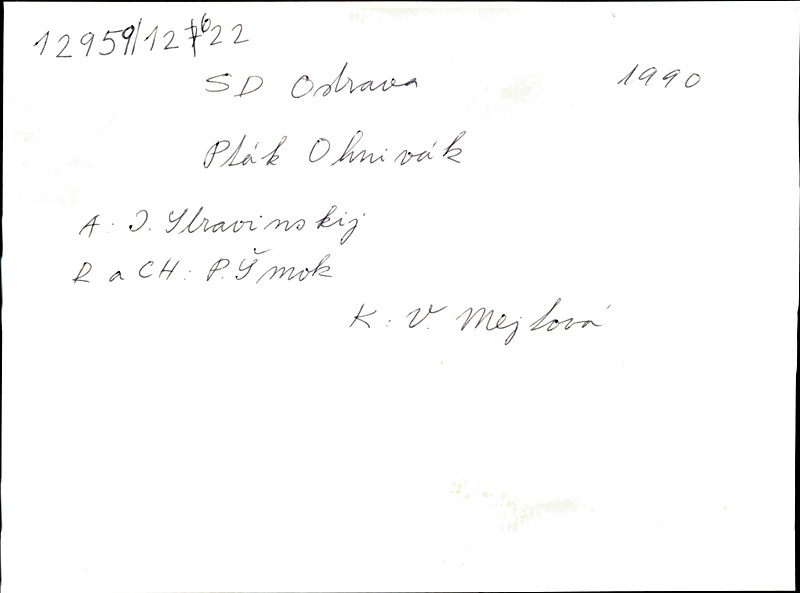 12959/12622
SD Ostrava 1990
Pták Ohnivák
A: I. Stravinskij
R a CH: P. Šmok
K: V. Mejtová